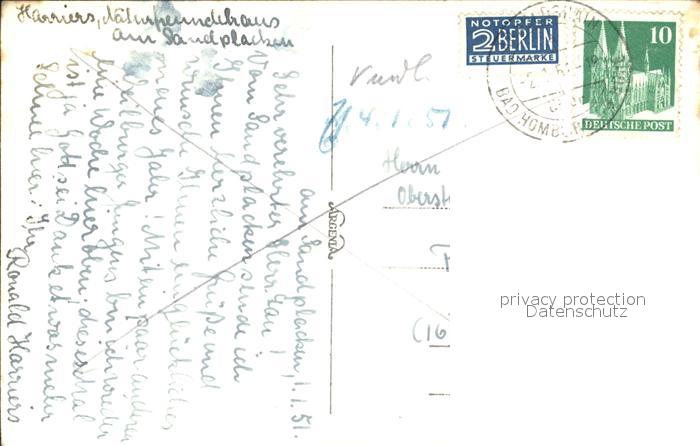 Harriers, Naturfreundehaus
am Sandplacken
am Sandplacken, 1.1.51.
Sehr verehrter Herr Lau!
Vom Sandplacken sende ich
Ihnen herzliche Grüße und
wünsch Ihnen ein glückliches
neues Jahr! Mit ein paar anderen
Weilburger Jungens bin ich wieder
eine Woche hier oben; dieses Mal
ist ja Gott sei Dank etwas mehr
Schnee hier! Ihr
Ronald Harriers
NOTOPFER
2 BERLIN
STEUERMARKE
10
DEUTSCHE POST
BAD HOMBURG
4.1.51.
Herrn
Oberst
(16
ARGENIA
privacy protection
Datenschutz